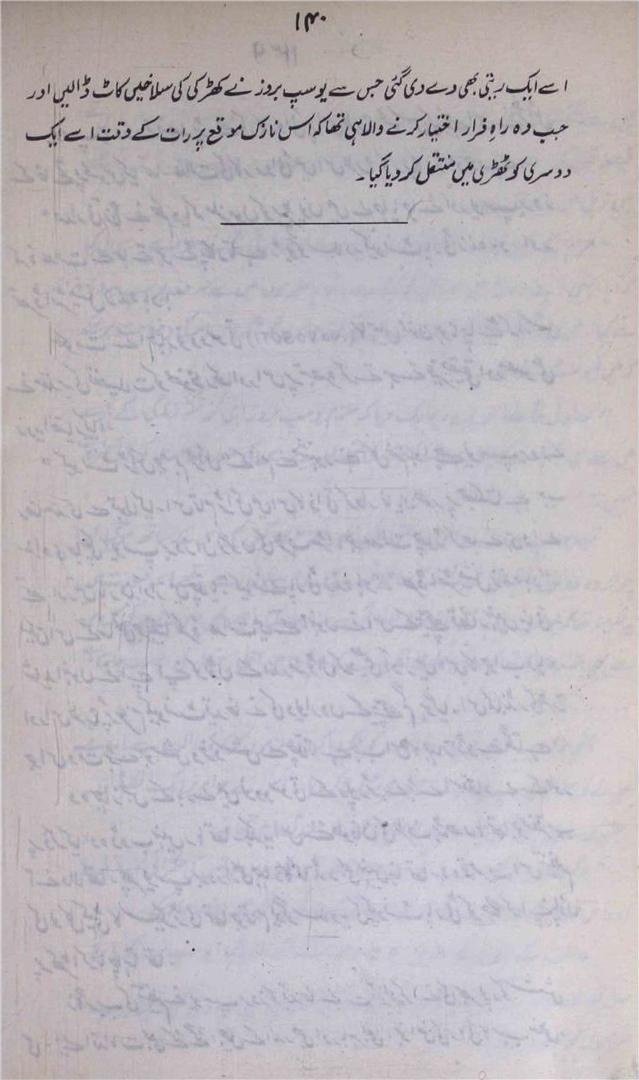 ۱۴۰
اسے ایک ریتی بھی دے دی گئی جس سے یوسپ بروز نے کھڑکی کی سلاخیں کاٹ ڈالیں اور
جب وہ راہِ فرار اختیار کرنے والا ہی تھا کہ اس نازک موقع پر رات کے وقت اسے ایک
دوسری کوٹھڑی میں منتقل کر دیا گیا۔